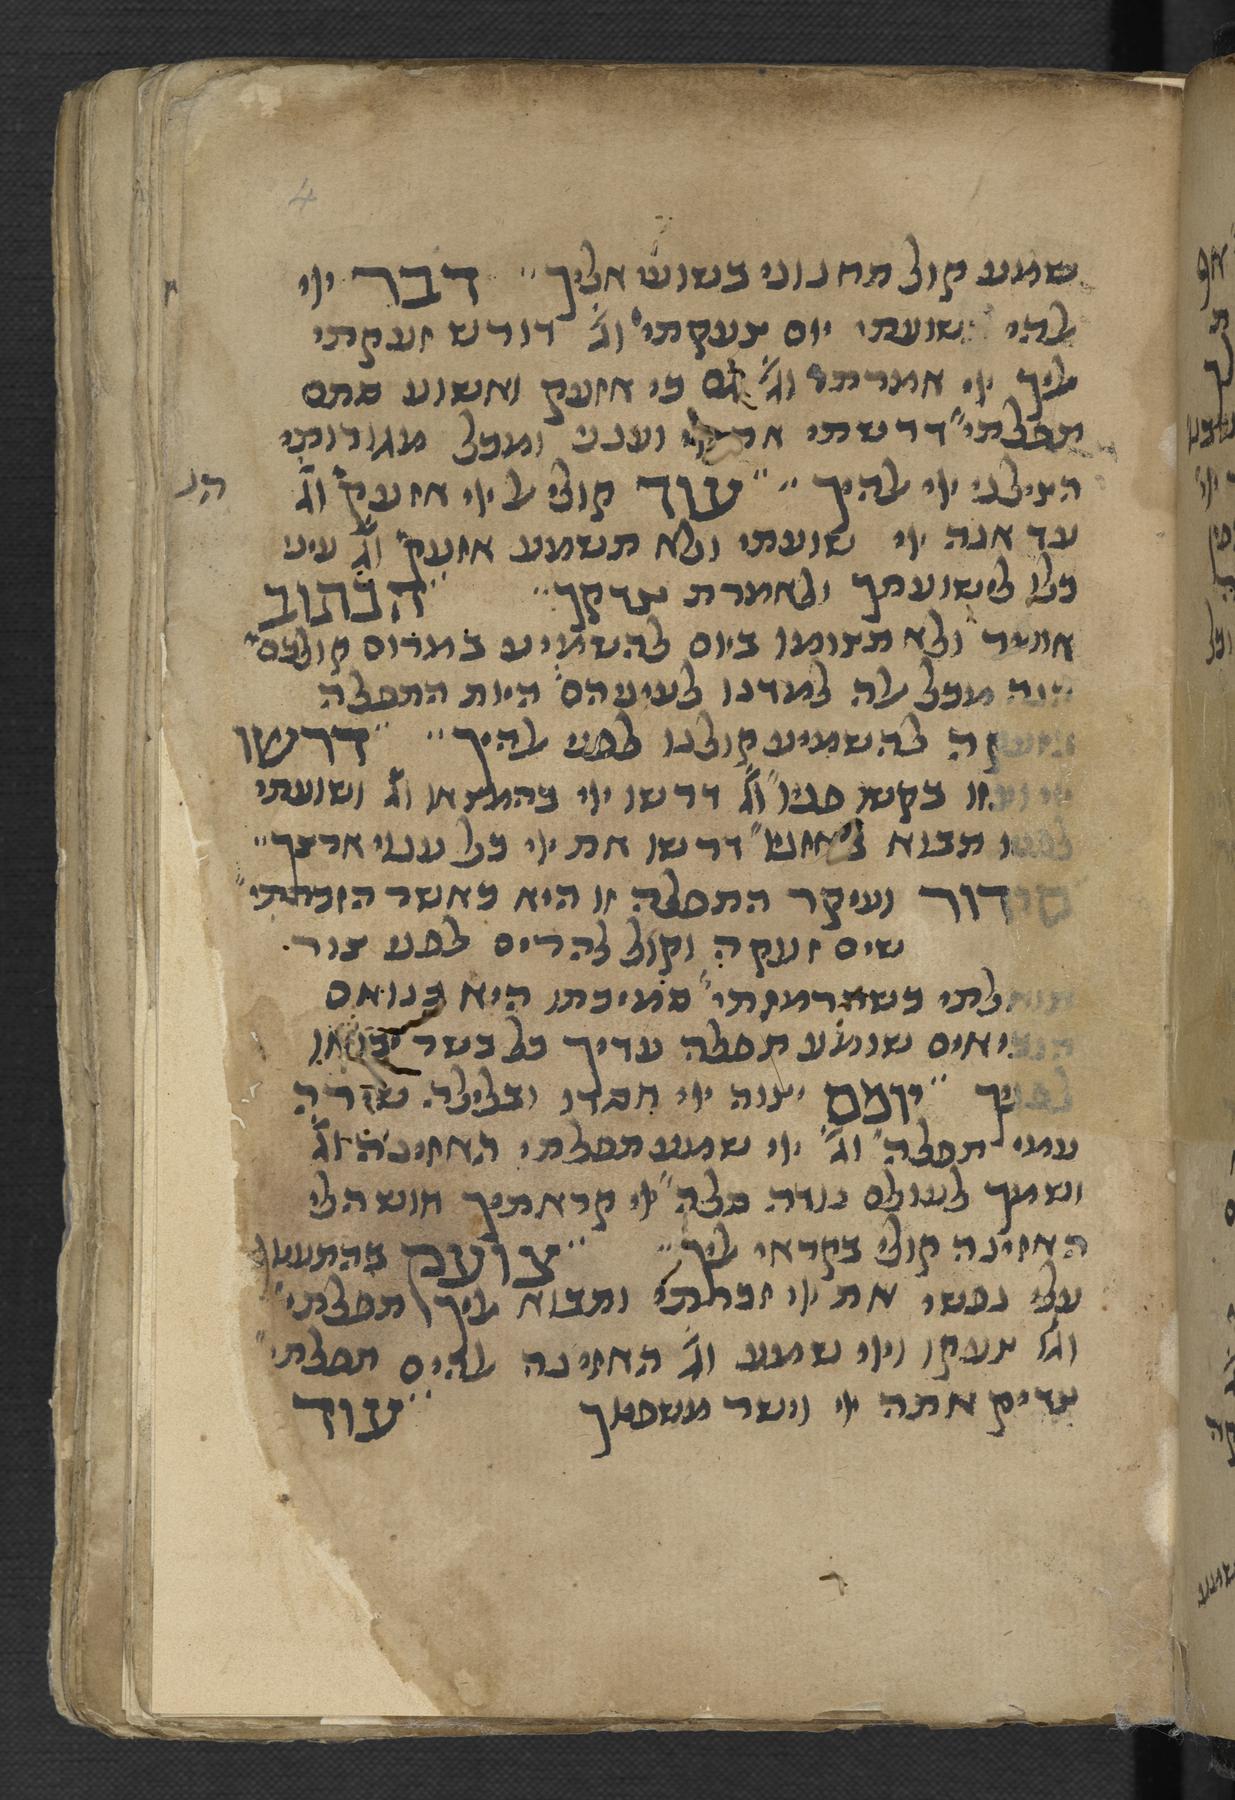 4
שמע קול תחנוני בשועי אליך״ דבר ייי
להי ישועתי יום צעקתי וג׳ דורש זעקתי
ליך ייי אמרתי וג׳ גם כי אזעק ואשוע סתם
תפלתי״ דרשתי את ייי וענני ומכל מגורותי
הצילני ייי להיך ״ ״עוד קולי ל ייי אזעק וג׳
עד אנה ייי שועתי ולא תשמע אזעק וג׳ עיני
כלו לישועתך ולאמרת צדקך״ ״הכתוב
אומר ולא תצומו כיום להשמיע במרום קולכם״
הנה מכל לה למדנו לעיניהם היות התפלה
להשמיע קולנו לפני להיך״ ״דרשו
ייי ועזו בקשו פניו וג׳ דרשו ייי בהמצאו וג׳ ושועתי
לפניו תבוא באזניו״ דרשו את ייי כל ענוי ארצך״
סידור ועיקר התפלה זו היא כאשר הזכרתי״
שים זעקה וקול להרים לפני צור.
כשהרמזתי״ סמיכתו היא בנואם
הנביאים שומע תפלה עדיך כל בשר יבואו
לפניך ״יומם יצוה ייי חסדו ובלילה שירה
עמי תפלה״ וג׳ ייי שמע תפלתי האזינה וג׳
ושמך לעולם נודה סלה״ ייי קראתיך חושה לי
האזינה קולי בקראי ליך״ ״צועק בהתעטף
עלי נפשי את ייי זכרתי ותבוא ליך תפלתי״
וג׳ צעקו וייי שמע וג׳ האזינה להים תפלתי״
צדיק אתה ייי וישר משפטיך ״עוד